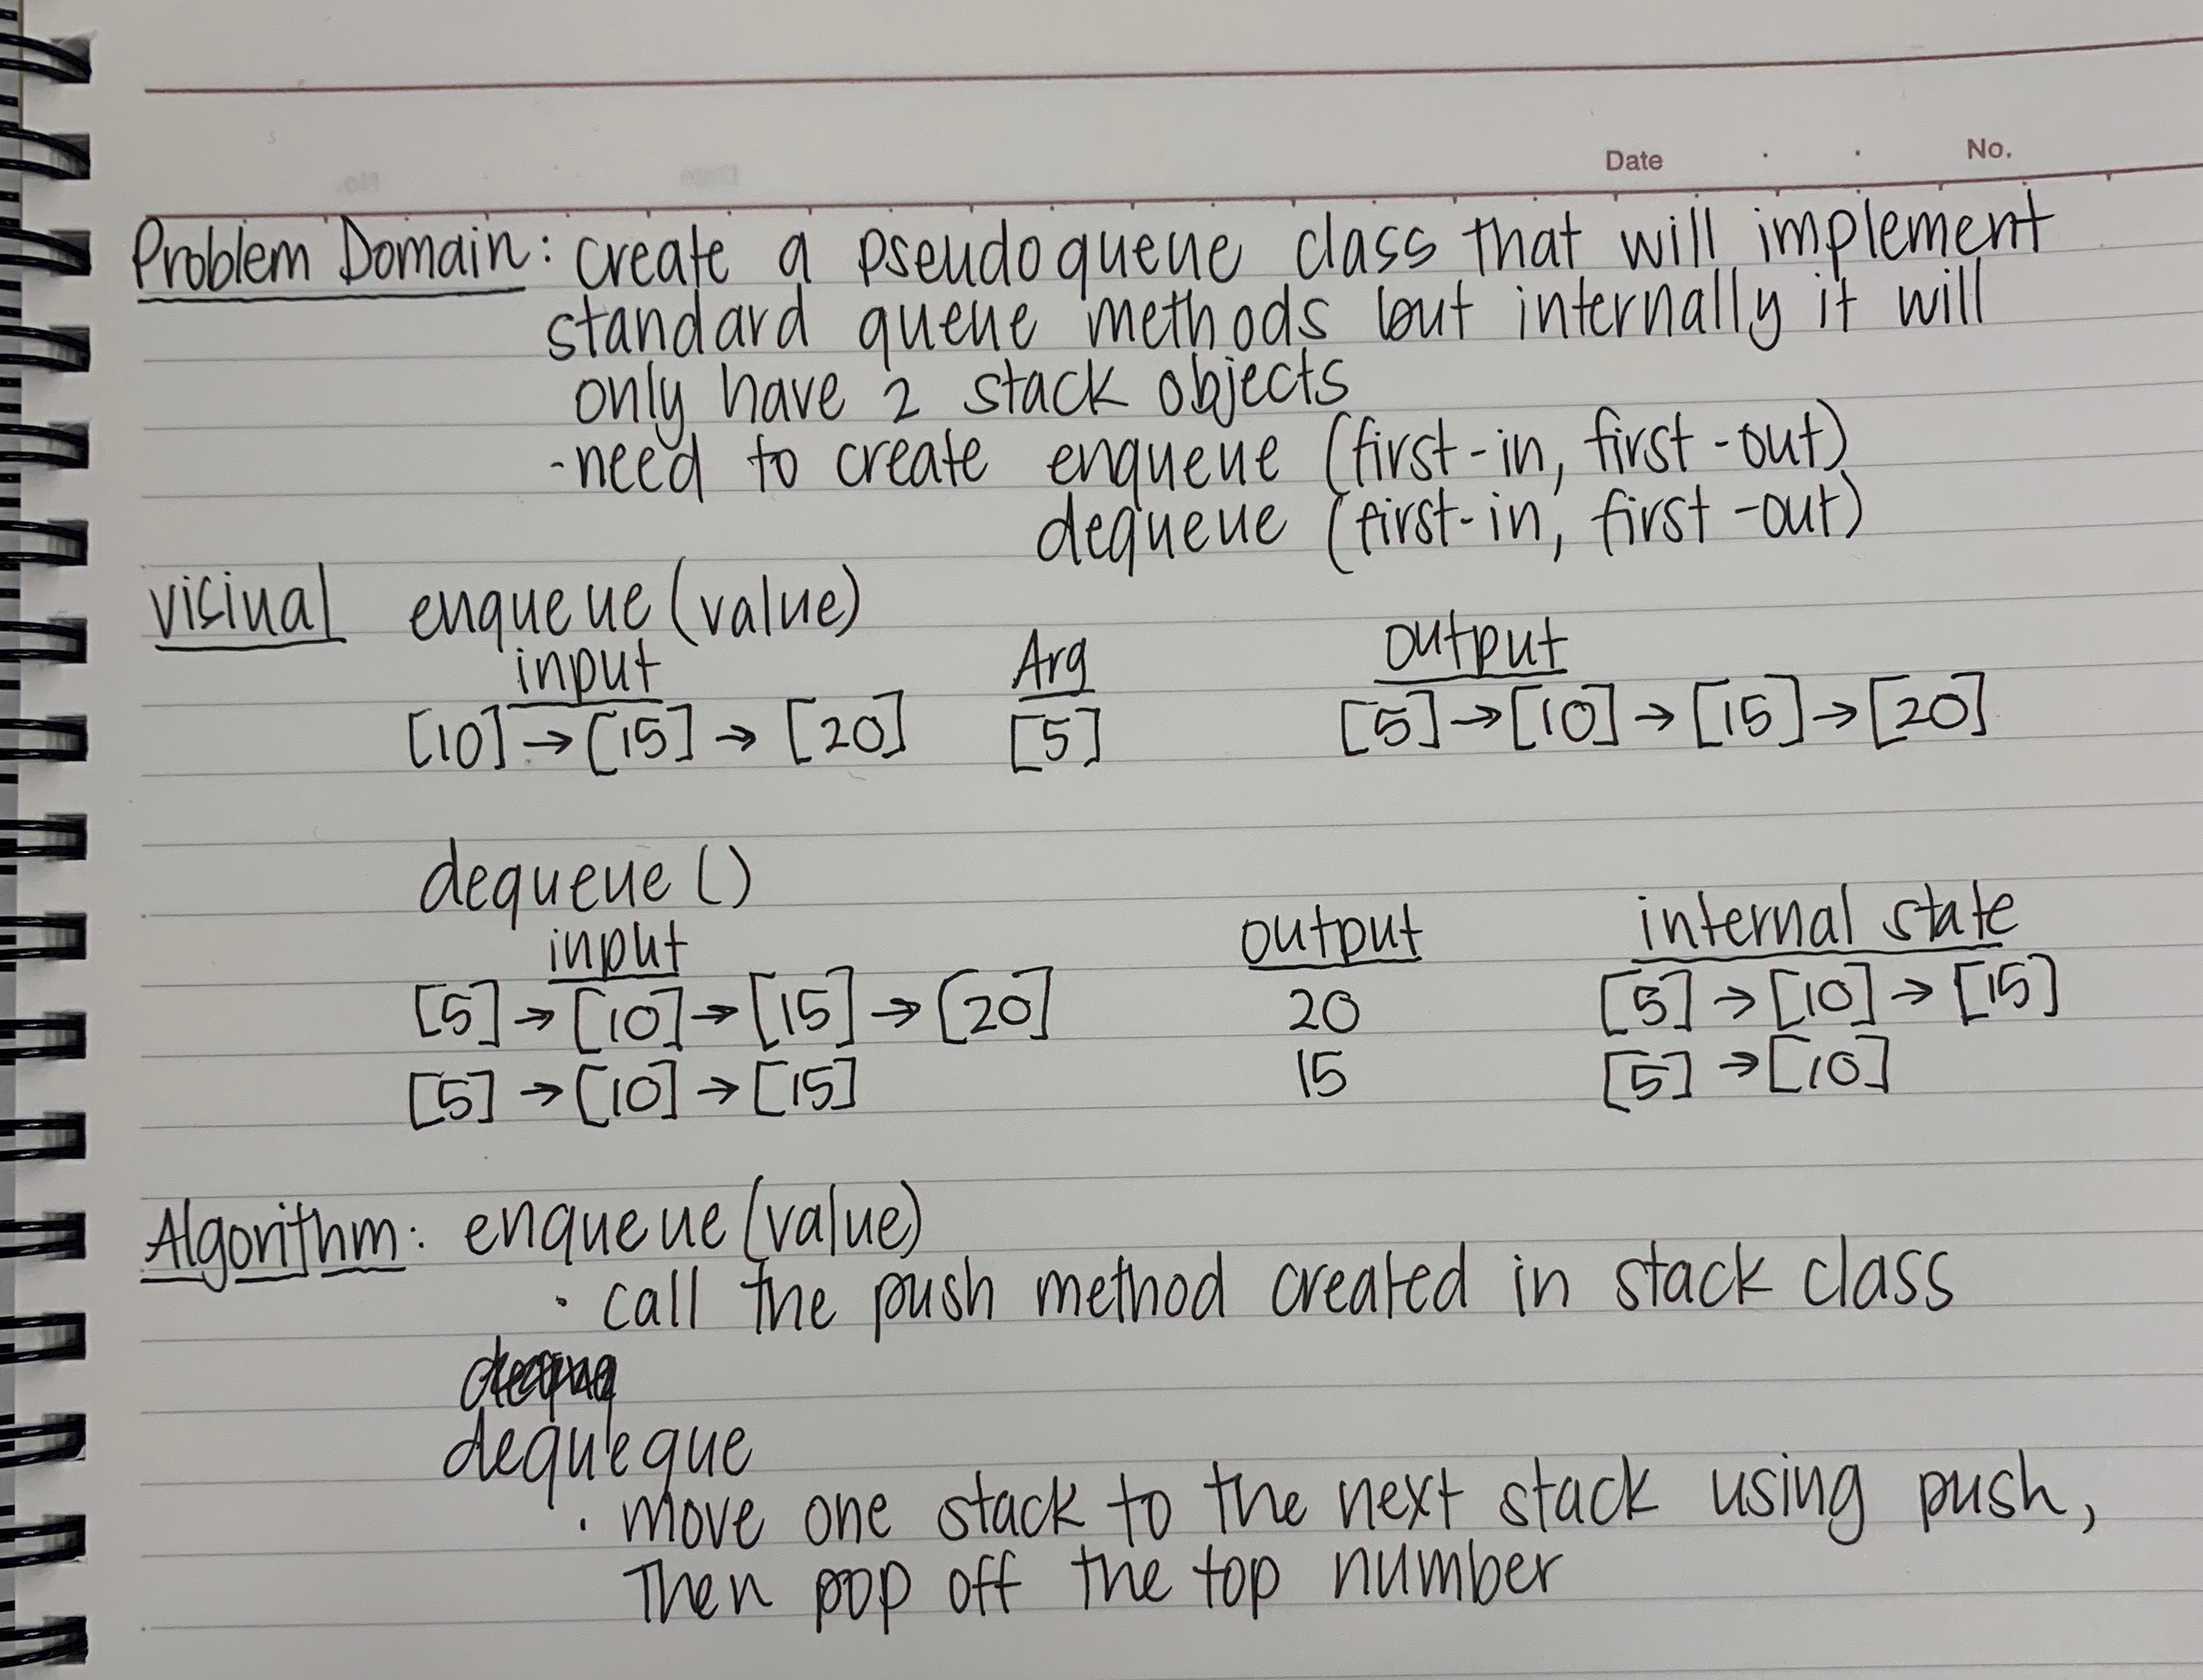 Date . . No.
Problem Domain: create a pseudoqueue class that will implement
standard queue methods but internally it will
only have 2 stack objects
-need to create enqueue (first-in, first-out)
dequeue (first-in, first-out)
visiual enqueue (value)
input Arg output
[10] → [15] → [20] [5] [5] → [10] → [15] → [20]
dequeue ()
input output internal state
[5] → [10] → [15] → [20] 20 [5] → [10] → [15]
[5] → [10] → [15] 15 [5] → [10]
Algorithm: enqueue (value)
· call the push method created in stack class
dequeque
· move one stack to the next stack using push,
then pop off the top number